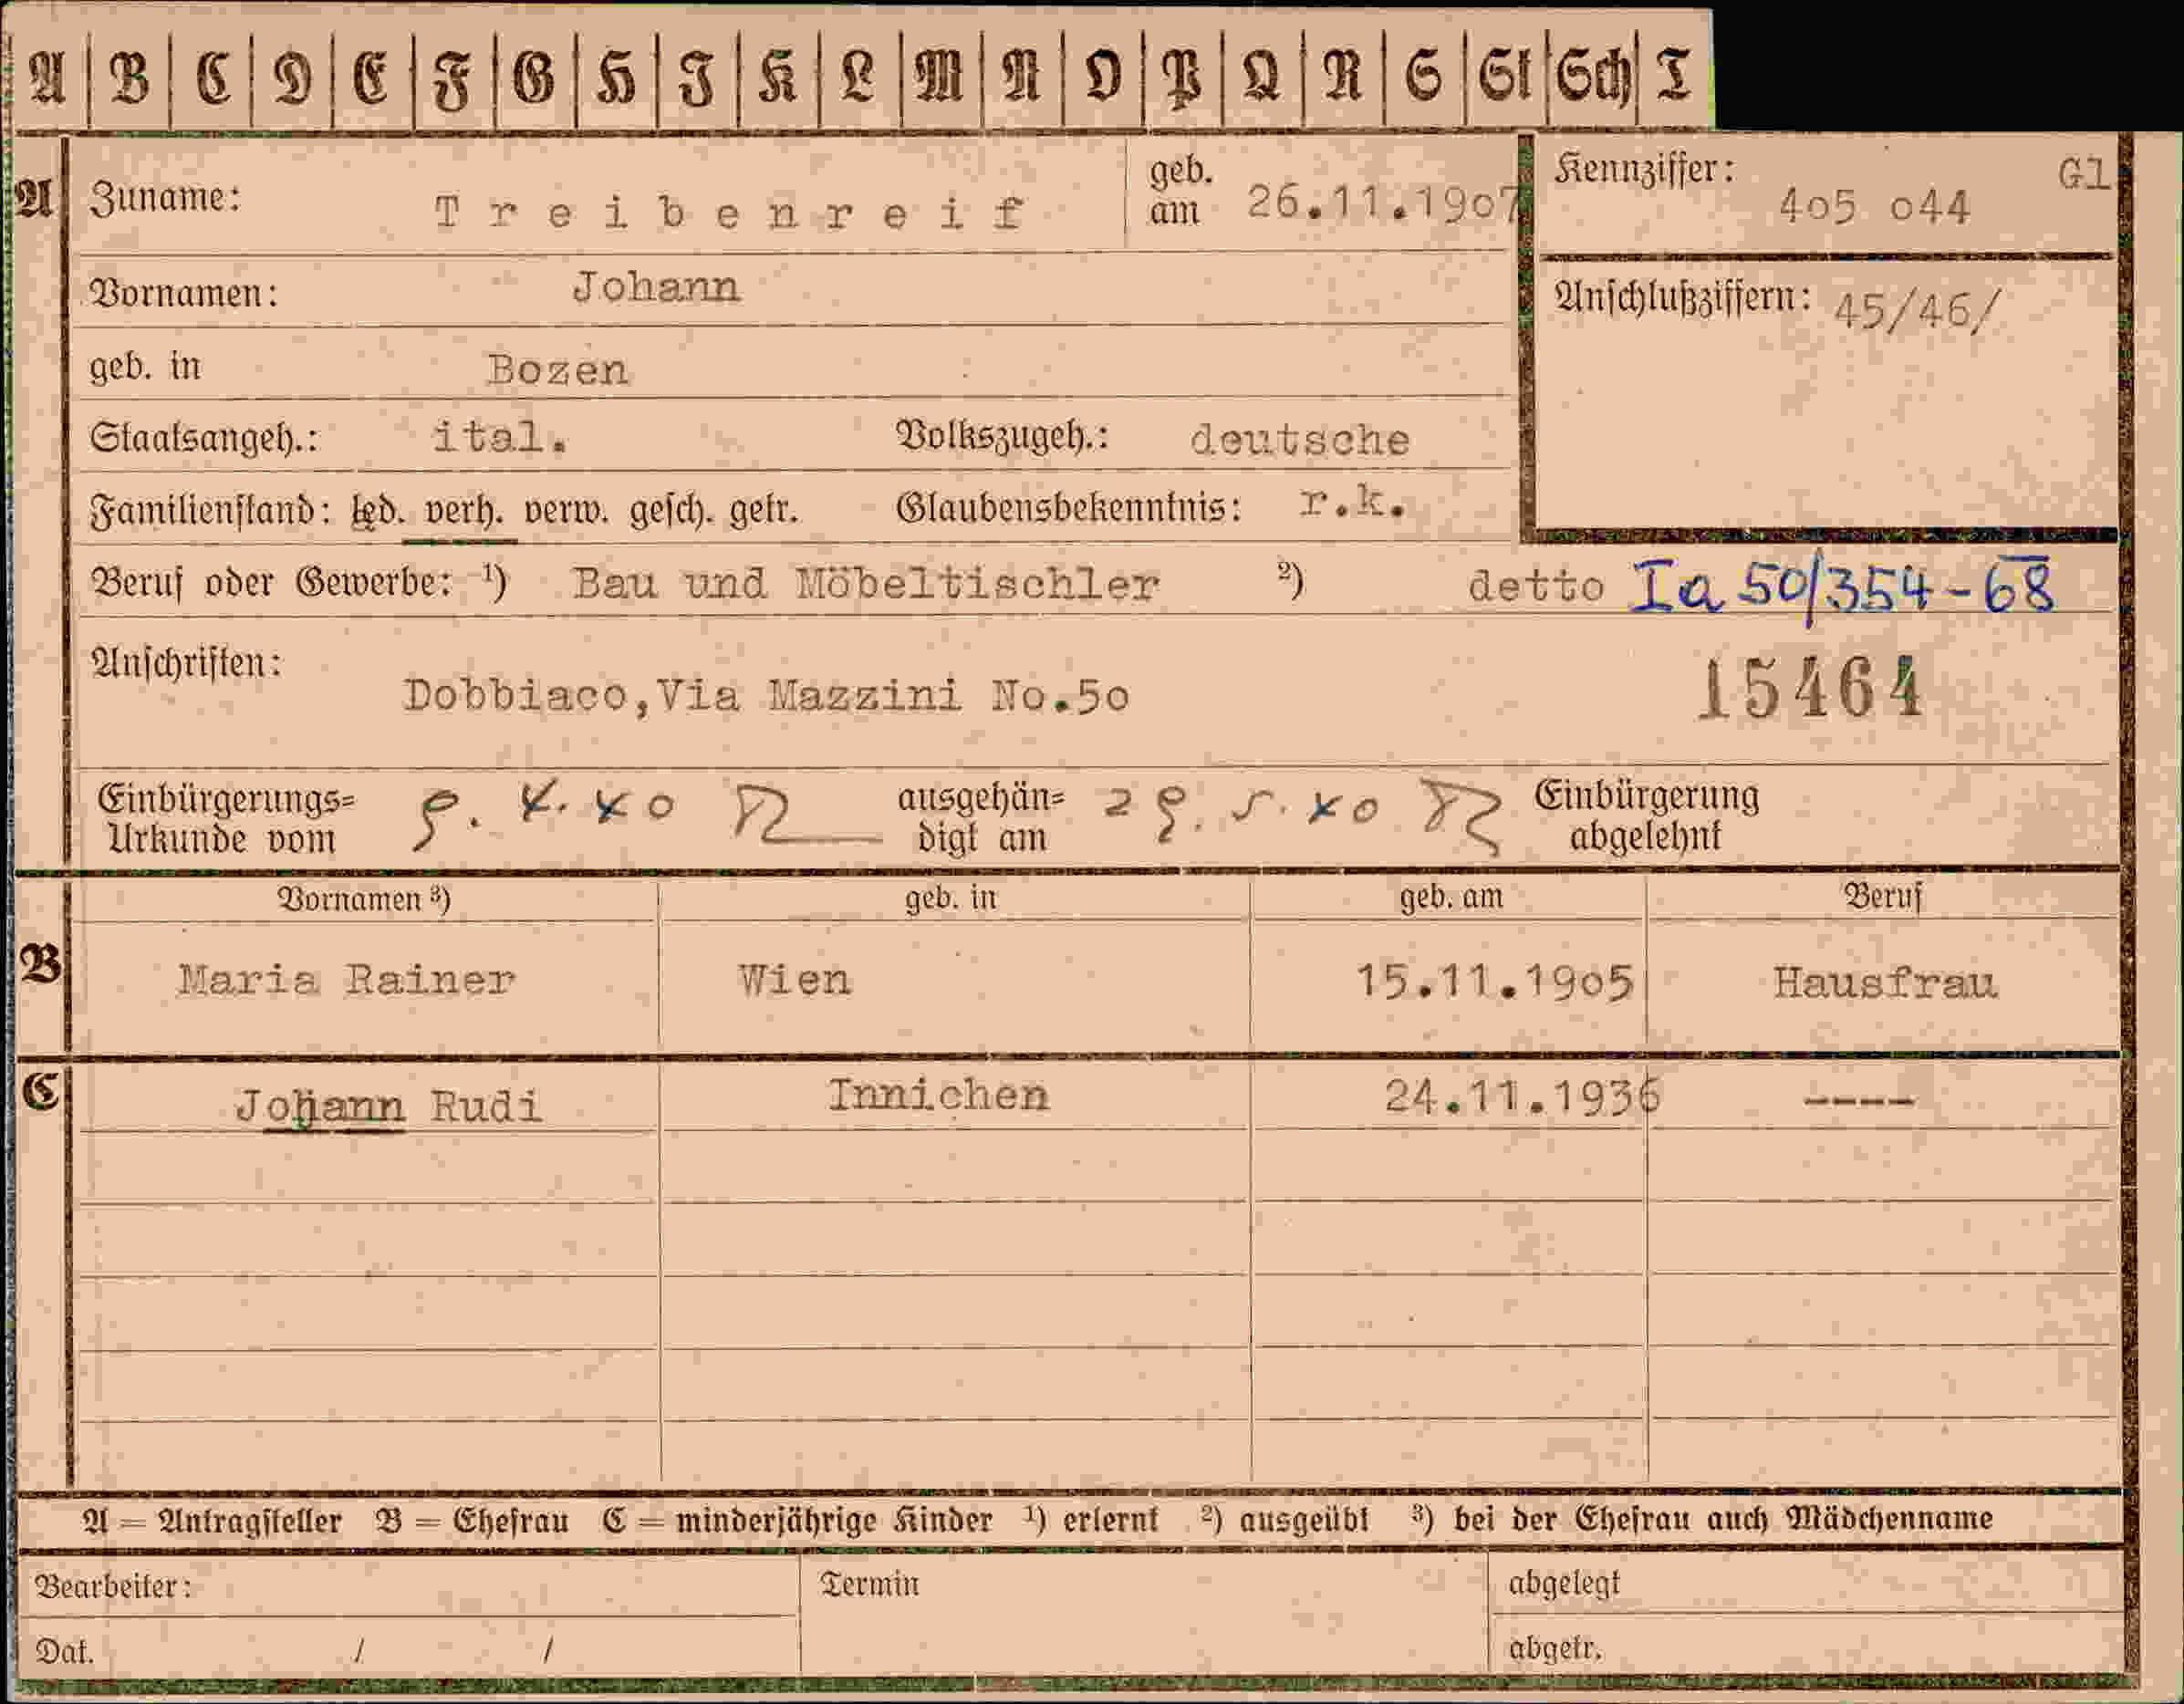 A B C D E F G H I K L M N O P Q R S St Sch T
A Zuname: Treibenreif geb. am 26.11.1907 Kennziffer: 405 044 Gl
Vornamen: Johann Anschlußziffern: 45/46/
geb. in Bozen
Staatsangeh.: ital. Volkszugeh.: deutsche
Familienstand: led. verh. verw. gesch. getr. Glaubensbekenntnis: r.k.
Beruf oder Gewerbe: ¹) Bau und Möbeltischler ²) detto Ia 50/354-68
Anschriften: Dobbiaco, Via Mazzini No.50 15464
Einbürgerungs= ausgehän= Einbürgerung
Urkunde vom 9. 4. 40 digt am 29. 5. 40 abgelehnt
Vornamen ³) geb. in geb. am Beruf
B Maria Rainer Wien 15.11.1905 Hausfrau
C Johann Rudi Innichen 24.11.1936 ----
A = Antragsteller B = Ehefrau C = minderjährige Kinder ¹) erlernt ²) ausgeübt ³) bei der Ehefrau auch Mädchenname
Bearbeiter: Termin abgelegt
Dat. / / abgetr.